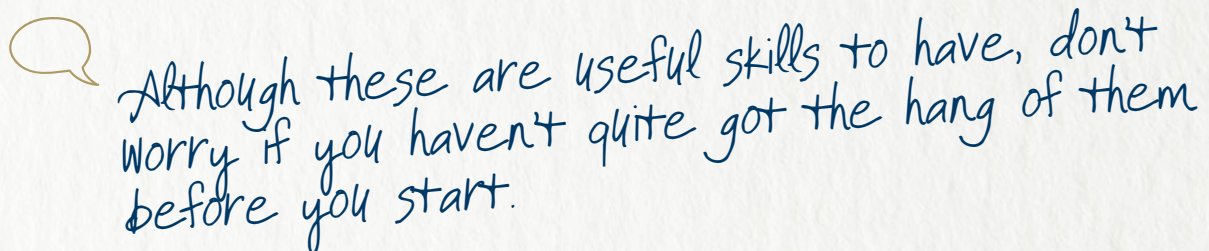 Although these are useful skills to have, don't
worry if you haven't quite got the hang of them
before you start.